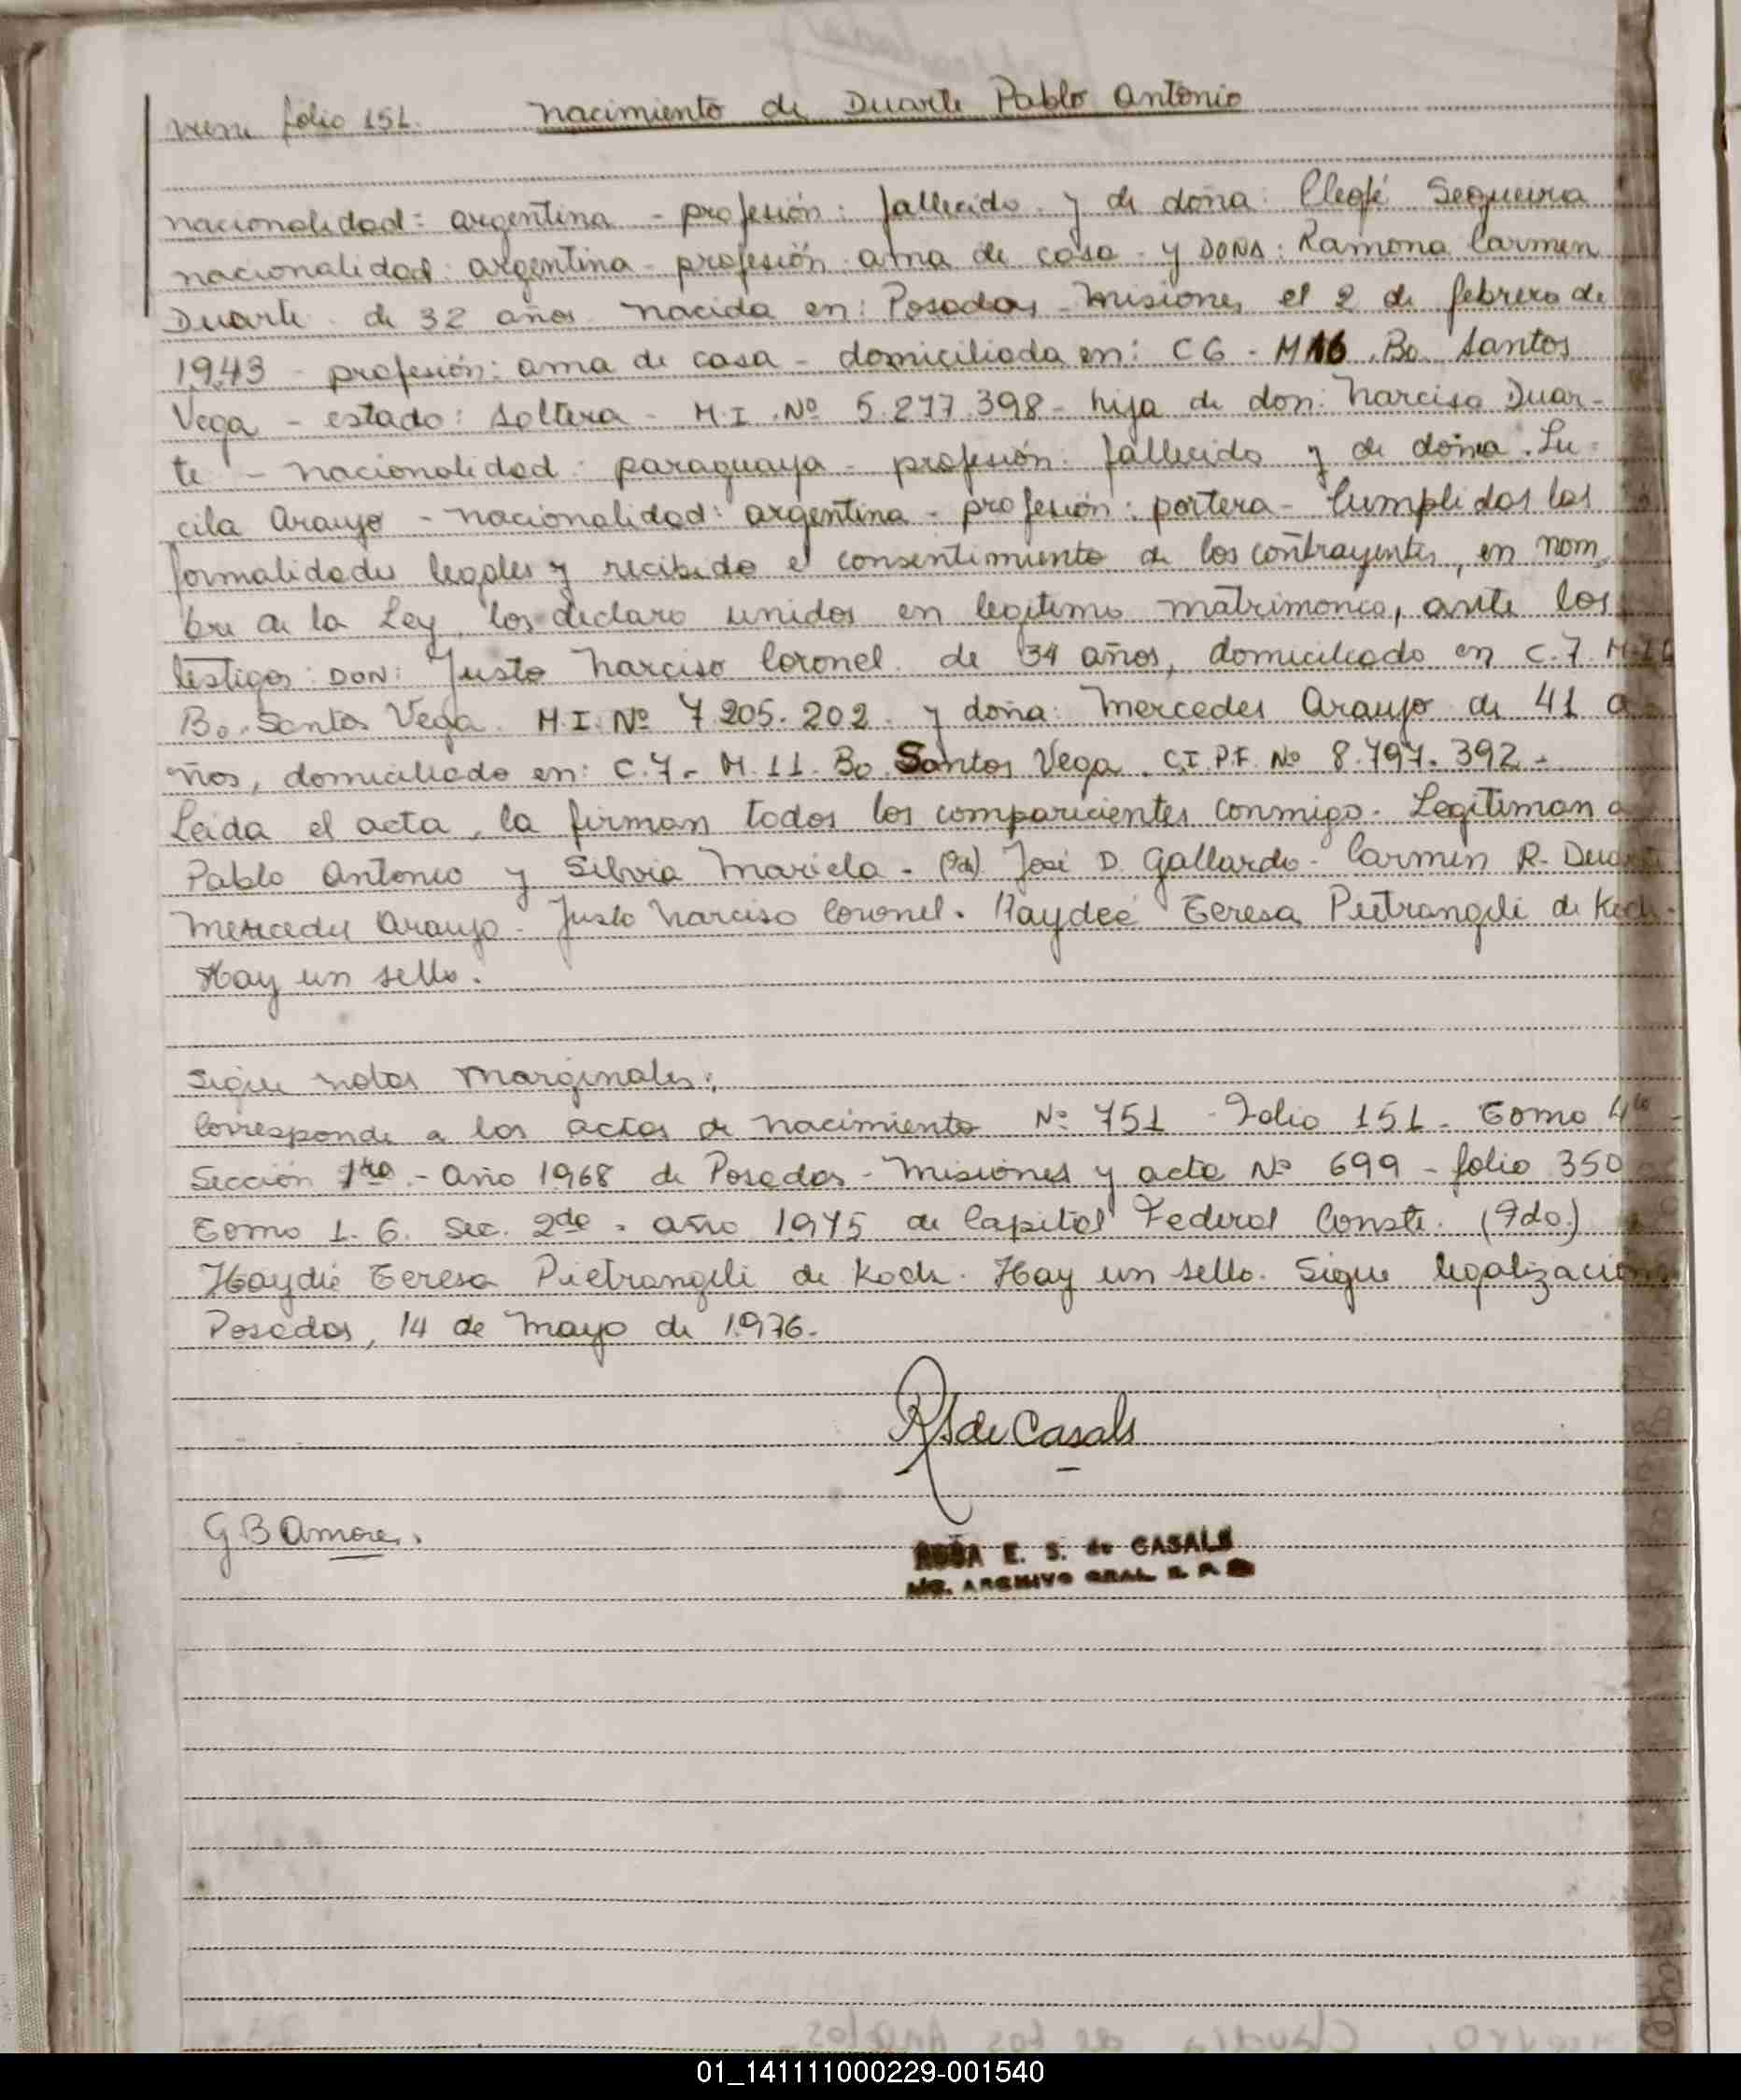 viene folio 151. nacimiento de Duarte Pablo Antonio
nacionalidad: argentina - profesión: fallecido y de doña: Clegé Sequeira
nacionalidad: argentina - profesión ama de casa - y DOÑA: Ramona Carmen
Duarte de 32 años nacida en: Posadas - Misiones el 2 de febrero de
1943 - profesión: ama de casa - domiciliada en: C6 - M16. Bo. Santos
Vega - estado: soltera - M.I. Nº 5.277.398 - hija de don: Narciso Duar-
te - nacionalidad: paraguaya - profesión: fallecido y de doña. Lu-
cila Araujo - nacionalidad: argentina - profesión: portera - Cumplidas las
formalidades legales y recibido el consentimiento de los contrayentes, en nom-
bre de la Ley, los declaro unidos en legítimo matrimonio, ante los
testigos: DON: Justo Narciso Coronel de 34 años, domiciliado en C.7. M.
Bo. Santos Vega. M.I. Nº 7.205.202. y doña: Mercedes Araujo de 41 a
ños, domiciliado en: C.7. M.11. Bo. Santos Vega. C.I.P.F. Nº 8.797.392 -
Leida el acta, la firman todos los comparecientes conmigo. Legitiman a
Pablo Antonio y Silvia Mariela. (Fdo) José D. Gallardo - Carmen R. Duarte
Mercedes Araujo - Justo Narciso Coronel. Haydeé Teresa Pietrangeli de Koch.
Hay un sello.
Sigue notas marginales:
Corresponde a las actas de nacimiento Nº 751 - Folio 151 - Tomo 4to -
Sección 1ra - Año 1968 de Posadas - Misiones y acta Nº 699 - folio 350
Tomo 1. G. Sec. 2da. año 1975 de Capital Federal Conste. (Fdo.)
Haydée Teresa Pietrangeli de Koch. Hay un sello. Sigue legalización
Posadas, 14 de Mayo de 1976.
RSdeCasals
G B Amores.
ROSA E. S. de CASALS
ARCHIVO GRAL. R. P.
01_141111000229-001540